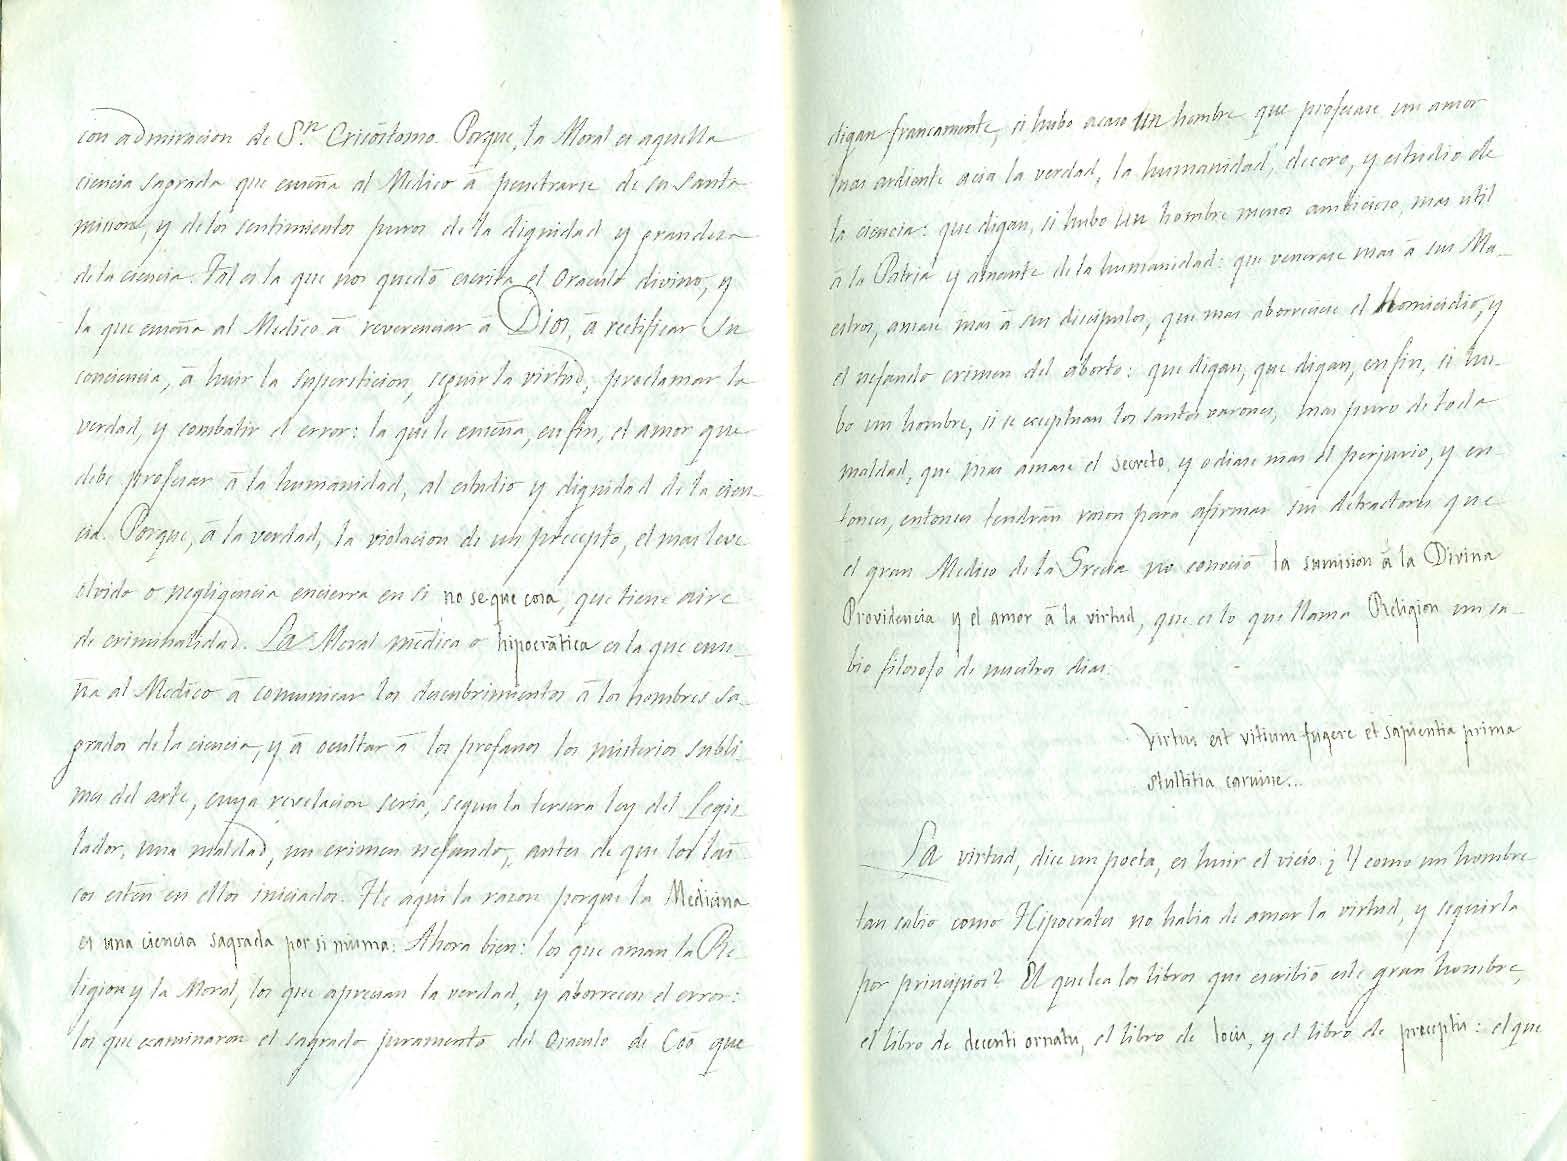 con admiracion de S.n Crisóstomo. Porque, la Moral es aquella
ciencia sagrada que enseña al Medico á penetrarse de su santa
mision, y de los sentimientos puros de la dignidad y grandeza
de la ciencia. Tal es la que nos quedó escrita el Oraculo divino, y
la que enseña al Medico á reverenciar á Dios, á rectificar su
conciencia, á huir la supersticion, seguir la virtud, proclamar la
verdad, y combatir el error: la que le enseña, en fin, el amor que
debe profesar á la humanidad, al estudio y dignidad de la cien-
cia. Porque, á la verdad, la violacion de un precepto, el mas leve
olvido o negligencia encierra en si no se que cosa, que tiene aire
de criminalidad. La Moral médica o hipocrática es la que ense-
ña al Medico á comunicar los descubrimientos á los hombres sa-
grados de la ciencia, y á ocultar á los profanos los misterios subli-
mes del arte, cuya revelacion seria, segun la tercera ley del Legis-
lador, una maldad, un crimen nefando, antes de que los lai-
cos estén en ellos iniciados. He aqui la razon porque la Medicina
es una ciencia sagrada por si misma. Ahora bien: los que aman la Re-
ligion y la Moral, los que aprecian la verdad, y aborrecen el error:
los que examinaron el sagrado juramento del Oraculo de Cóo que
digan francamente, si hubo acaso un hombre que profesase un amor
mas ardiente acia la verdad, la humanidad, decoro, y estudio de
la ciencia: que digan, si hubo un hombre menos ambicioso, mas util
á la Patria y amante de la humanidad: que venerase mas á sus Ma-
estros, amase mas á sus discipulos, que mas aborreciese el homicidio, y
el nefando crimen del aborto: que digan, que digan, en fin, si hu-
bo un hombre, si se exceptuan los santos varones, mas puro de toda
maldad, que mas amase el secreto, y odiase mas el perjurio, y en-
tonces, entonces tendrán razon para afirmar sus detractores que
el gran Medico de la Grecia no conoció la sumision á la Divina
Providencia y el amor á la virtud, que es lo que llama Religion un sa-
bio filosofo de nuestros dias.
Virtus est vitium fugere et sapientia prima
stultitia caruisse...
La virtud, dice un poeta, es huir el vicio. ¿Y como un hombre
tan sabio como Hipocrates no habia de amar la virtud, y seguirla
por principios? El que lea los libros que escribió este gran hombre,
el libro de decenti ornatu, el libro de locis, y el libro de preceptis: el que